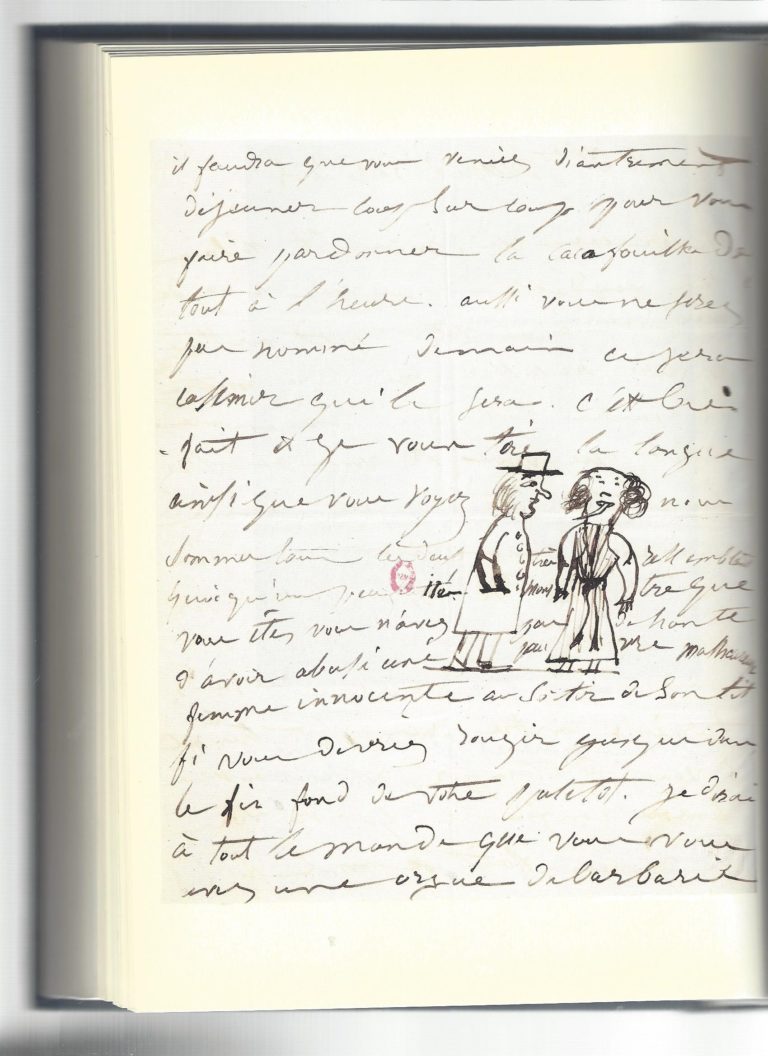 il faudra que vous veniez d'antrement
déjeuner coup sur coup pour vous
faire pardonner la cacafouilka de
tout à l'heure. aussi vous ne serez
pas nommé demain ce sera
casimir qui le sera. c'est bien
fait et je vous tire la langue
ainsi que vous voyez nous
sommes tous les deux très ressemblans
quoiqu'un peu que
vous êtes vous n'avez pas de honte
d'avoir abusé une pauvre malheureuse
femme innocente au sortir de son lit
fi vous devriez rougir jusque dans
le fin fond de votre paletot. je dirai
à tout le monde que vous vous
une orgue de barbarie